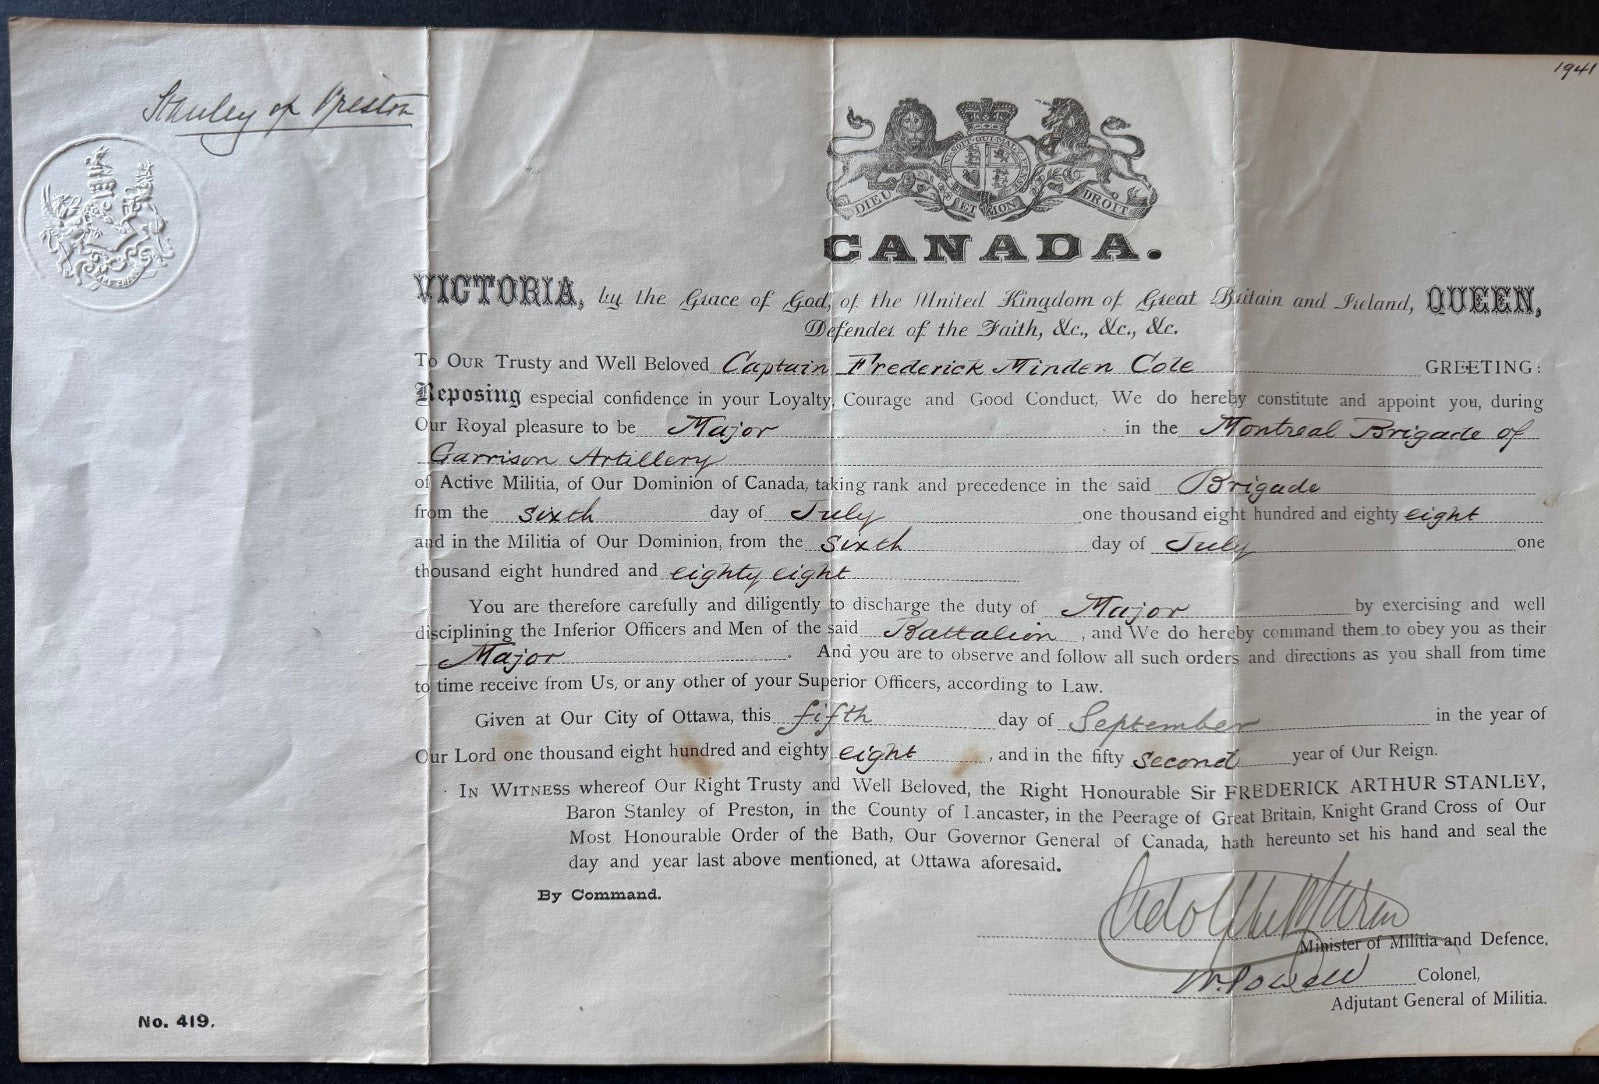 1941
Stanley of Preston
HONI SOIT QUI MAL Y PENSE
DIEU ET MON DROIT
CANADA.
VICTORIA, by the Grace of God, of the United Kingdom of Great Britain and Ireland, QUEEN,
Defender of the Faith, &c., &c., &c.
To Our Trusty and Well Beloved Captain Frederick Minden Cole GREETING:
Reposing especial confidence in your Loyalty, Courage and Good Conduct, We do hereby constitute and appoint you, during
Our Royal pleasure to be Major in the Montreal Brigade of
Garrison Artillery
of Active Militia, of Our Dominion of Canada, taking rank and precedence in the said Brigade
from the sixth day of July one thousand eight hundred and eighty eight
and in the Militia of Our Dominion, from the sixth day of July one
thousand eight hundred and eighty eight
You are therefore carefully and diligently to discharge the duty of Major by exercising and well
disciplining the Inferior Officers and Men of the said Battalion, and We do hereby command them to obey you as their
Major. And you are to observe and follow all such orders and directions as you shall from time
to time receive from Us, or any other of your Superior Officers, according to Law.
Given at Our City of Ottawa, this fifth day of September in the year of
Our Lord one thousand eight hundred and eighty eight, and in the fifty second year of Our Reign.
In Witness whereof Our Right Trusty and Well Beloved, the Right Honourable Sir FREDERICK ARTHUR STANLEY,
Baron Stanley of Preston, in the County of Lancaster, in the Peerage of Great Britain, Knight Grand Cross of Our
Most Honourable Order of the Bath, Our Governor General of Canada, hath hereunto set his hand and seal the
day and year last above mentioned, at Ottawa aforesaid.
By Command.
Adolphe P Caron
Minister of Militia and Defence.
W. Powell Colonel,
Adjutant General of Militia.
No. 419.